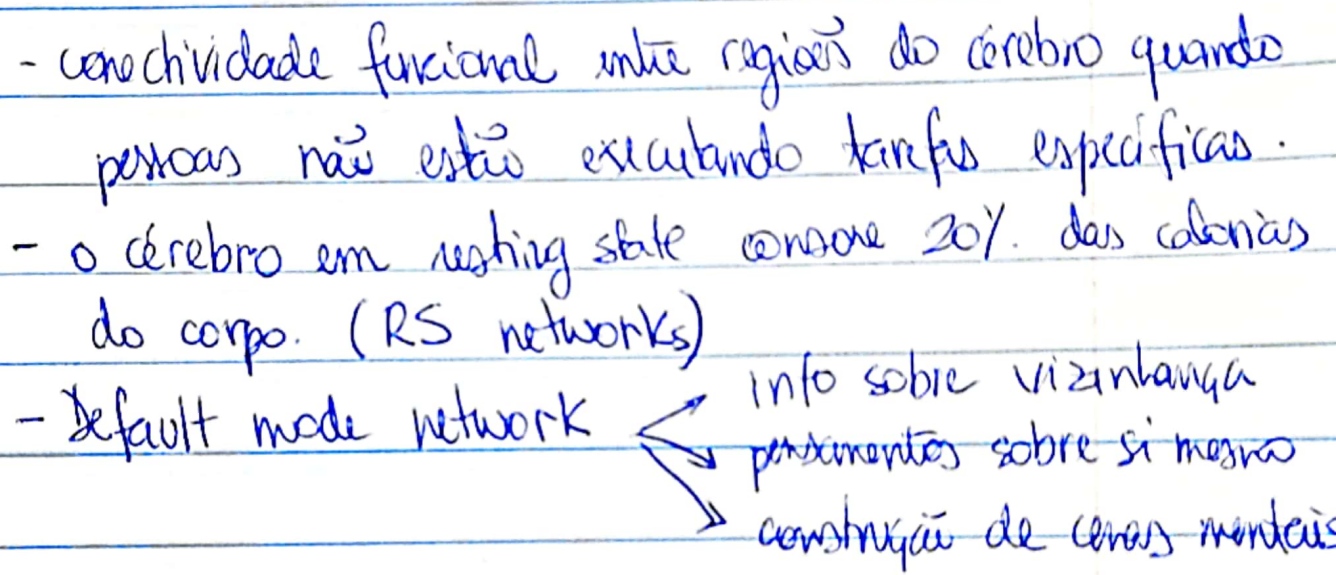 - conectividade funcional entre regiões do cérebro quando
pessoas não estão executando tarefas específicas.
- o cérebro em resting state consome 20% das calorias
do corpo. (RS networks)
- Default mode network
info sobre vizinhança
pensamentos sobre si mesmo
construção de cenas mentais